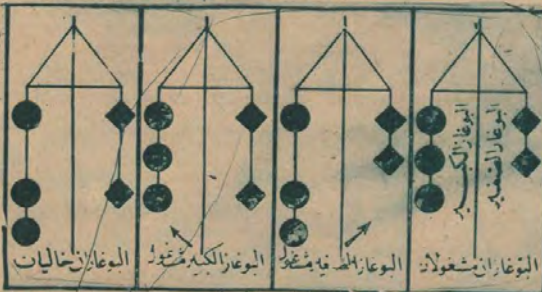 البوغاز الكبير
البوغاز الصغير
البوغازان مشغولان
البوغاز مشغول
البوغاز الكبير مشغول
البوغازان خاليان